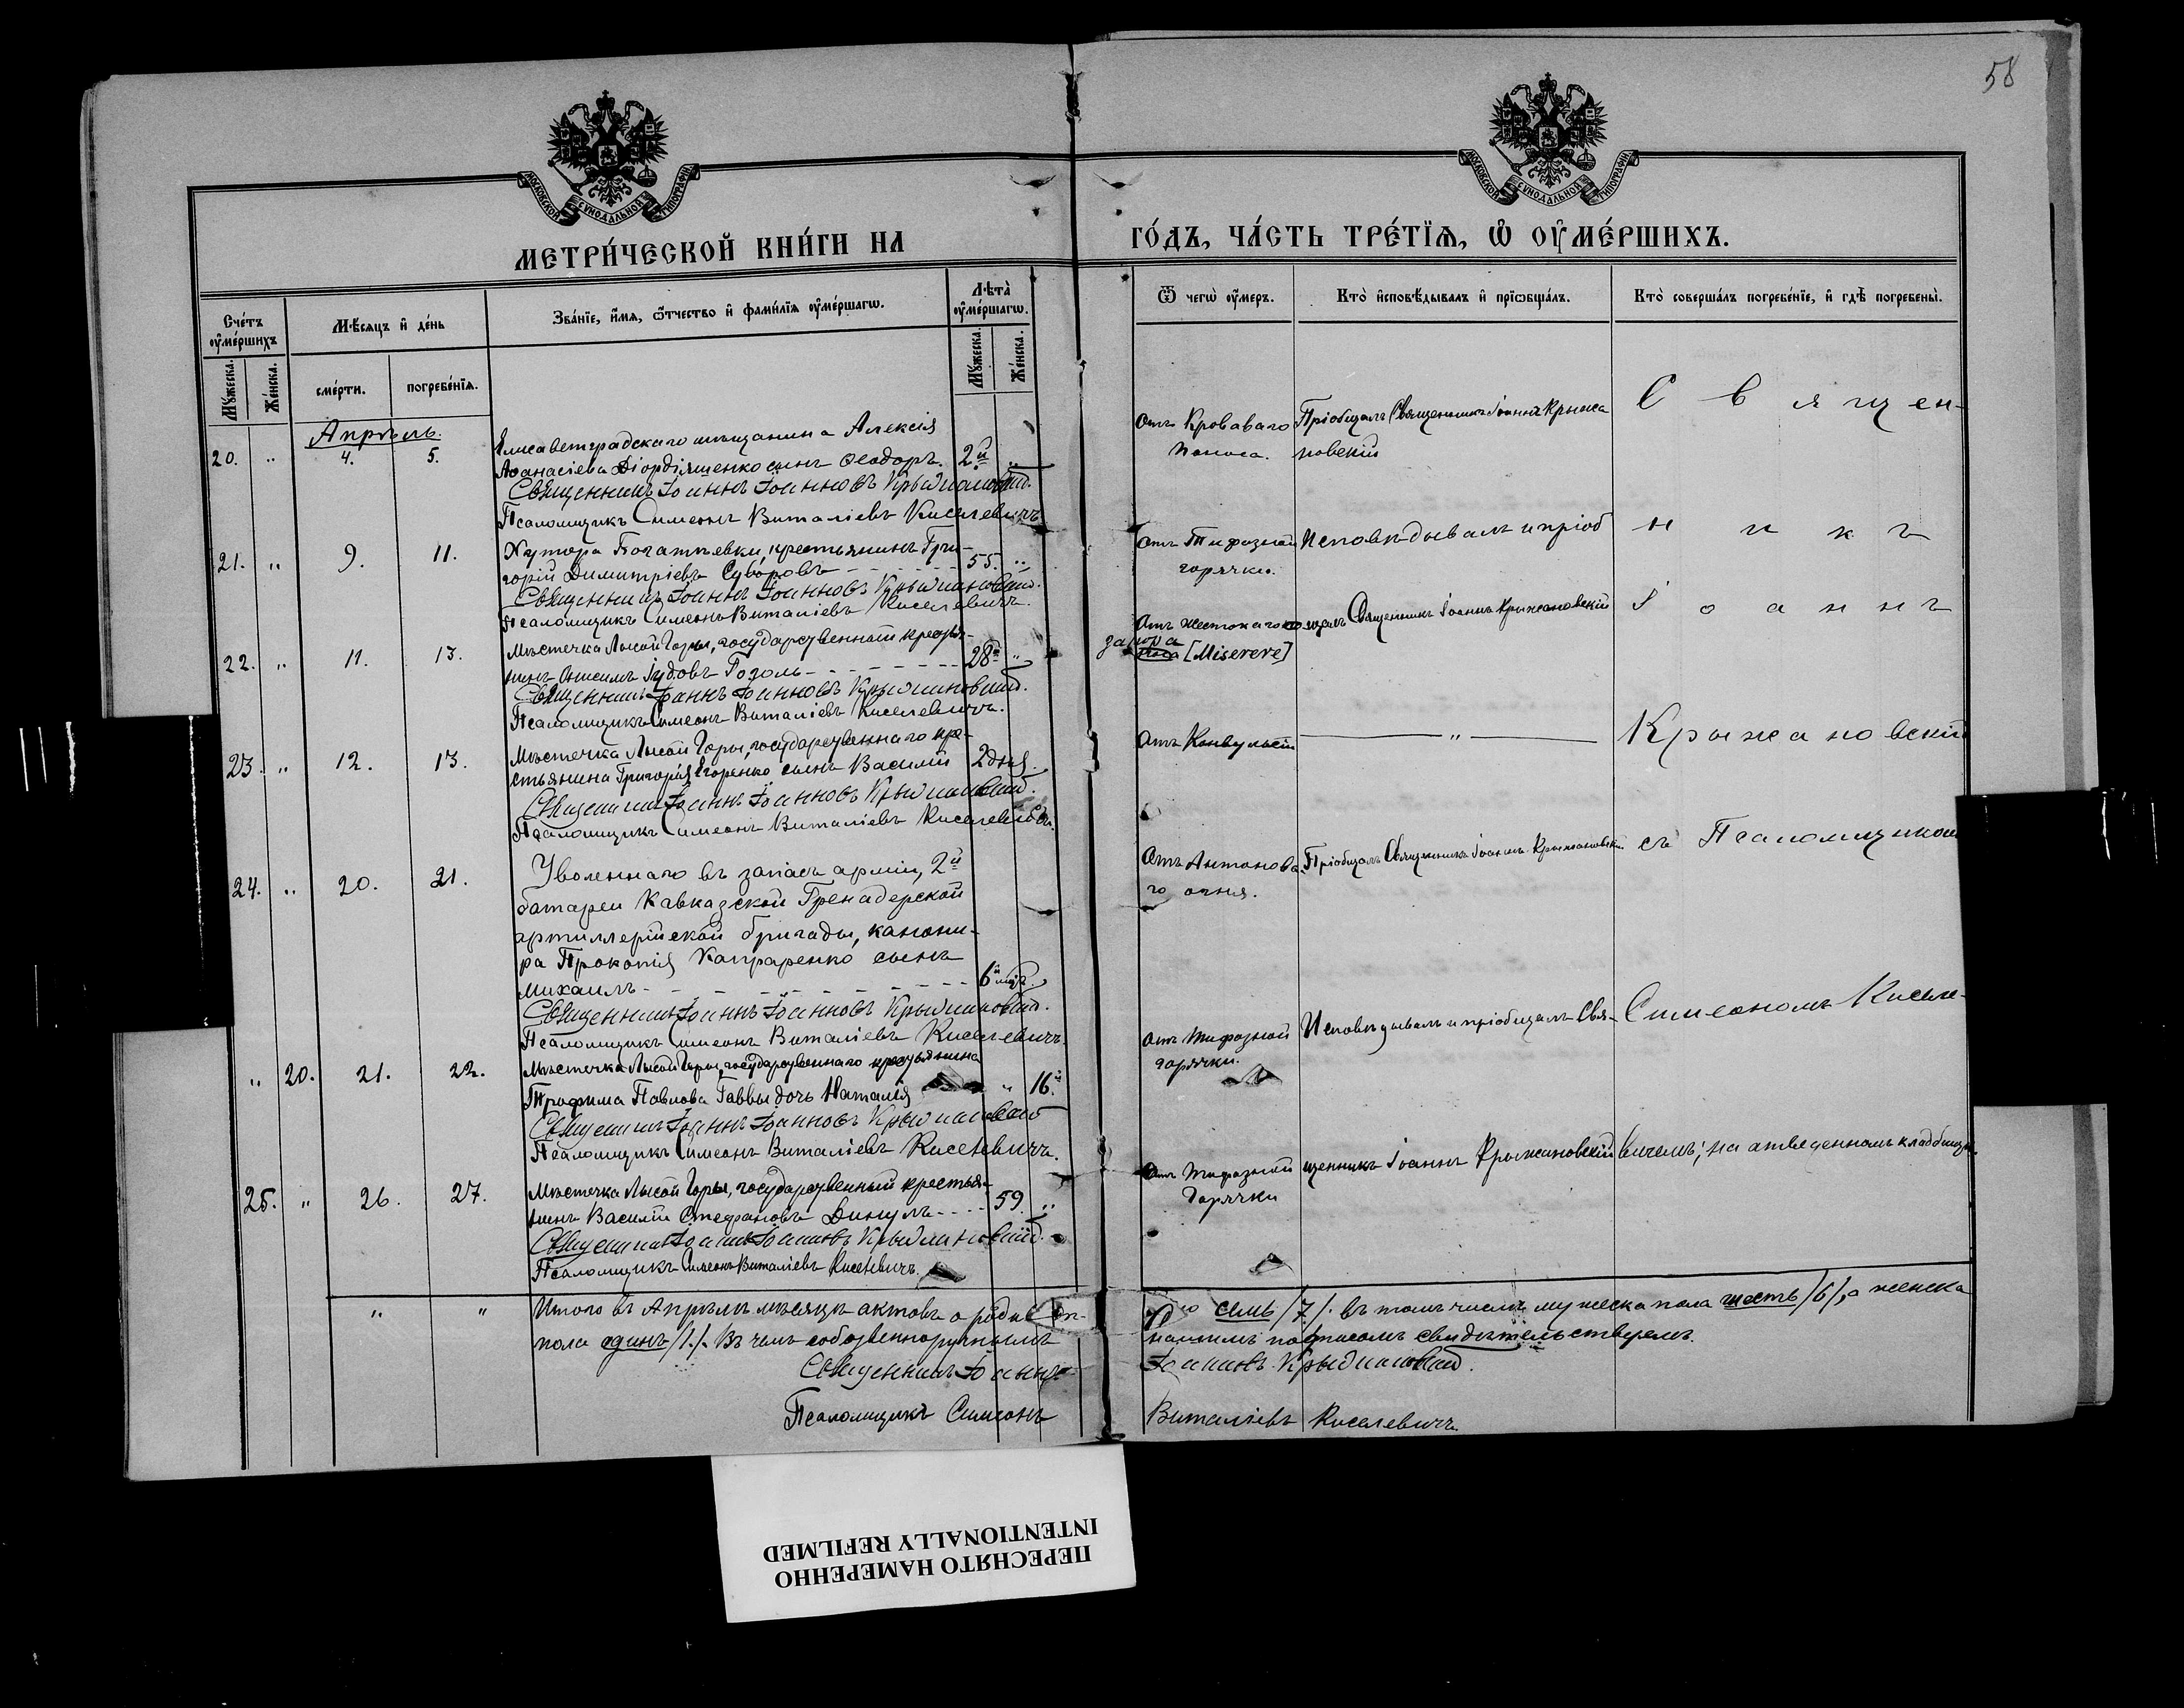 58
МОСКОВСКОЙ СѴНОДАЛЬНОЙ ТИПОГРАФІИ
МОСКОВСКОЙ СѴНОДАЛЬНОЙ ТИПОГРАФІИ
МЕТРИ́ЧЕСКОЙ КНИ́ГИ НА
ГО́ДЪ, ЧА́СТЬ ТРЕ́ТЇѦ, Ѡ҆ ОУ҆МЕ́РШИХЪ.
Сче́тъ оу҆ме́ршихъ
Мѣ́сяцъ и҆ де́нь
Зва́нїе, и҆́мя, ѻ҆́тчество и҆ фами́лїя оу҆ме́ршагѡ.
Лѣта̀ оу҆ме́ршагѡ.
Ѿ чегѡ̀ оу҆́меръ.
Кто̀ и҆сповѣ́дывалъ и҆ прїѡбща́лъ.
Кто̀ соверша́лъ погребе́нїе, и҆ гдѣ̀ погребены̀.
Мꙋ́жеска.
Же́нска.
сме́рти.
погребе́нїя.
Мꙋ́жеска.
Же́нска.
Апрѣль.
20. " 4. 5. Елисаветградскаго мѣщанина Алексія
Аѳанасіева Діордіященко сынъ Ѳеодоръ. 2й "
Священникъ Іоаннъ Іоанновъ Крыжановскій.
Псаломщикъ Симеонъ Виталіевъ Киселевичъ
Отъ Кроваваго
поноса.
Пріобщалъ Священникъ Іоаннъ Крыжа
новскій
Священ-
21. " 9. 11. Хутора Богатьевки, крестьянинъ Гри-
горій Димитріевъ Суворовъ 55. "
Священникъ Іоаннъ Іоанновъ Крыжановскій.
Псаломщикъ Симеонъ Виталіевъ Киселевичъ.
Отъ Тифозной
горячки.
Исповѣдывалъ и пріоб
никъ
22. " 11. 13. Мѣстечка Лысой Горы, государственный кресть-
янинъ Онисимъ Іудовъ Гоголь 28й "
Священникъ Іоаннъ Іоанновъ Крыжановскій.
Псаломщикъ Симеонъ Виталіевъ Киселевичъ.
Отъ жестокаго
запора
[Miserere]
щалъ Священникъ Іоаннъ Крыжановскій
Іоаннъ
23. " 12. 13. Мѣстечка Лысой Горы, государственнаго кре-
стьянина Григорія Егоренко сынъ Василій 2 дня.
Священникъ Іоаннъ Іоанновъ Крыжановскій.
Псаломщикъ Симеонъ Виталіевъ Киселевичъ.
Отъ Конвульсій
"
Крыжановскій
24. " 20. 21. Уволеннаго въ запасъ арміи, 2й
батареи Кавказской Гренадерской
артиллерійской бригады, канони-
ра Прокопія Капраренко сынъ
Михаилъ 6й мѣс.
Священникъ Іоаннъ Іоанновъ Крыжановскій.
Псаломщикъ Симеонъ Виталіевъ Киселевичъ.
Отъ Антонова-
го огня.
Пріобщалъ Священникъ Іоаннъ Крыжановскій
съ Псаломщикомъ
" 20. 21. 22. Мѣстечка Лысой Горы, государственнаго крестьянина
Трофима Павлова Гаввы дочь Наталія " 16й.
Священникъ Іоаннъ Іоанновъ Крыжановскій
Псаломщикъ Симеонъ Виталіевъ Киселевичъ.
Отъ Тифозной
горячки.
Исповѣдывалъ и пріобщалъ Свя-
Симеономъ Киселе-
25. " 26. 27. Мѣстечка Лысой Горы, государственный крестья-
нинъ Василій Стефановъ Динулъ 59. "
Священникъ Іоаннъ Іоанновъ Крыжановскій.
Псаломщикъ Симеонъ Виталіевъ Киселевичъ.
Отъ Тифозной
Горячки
щенникъ Іоаннъ Крыжановскій
вичемъ; на отведенномъ кладбищѣ.
" " Итого въ Апрѣлѣ мѣсяцѣ актовъ о
семь /7/. въ томъ числѣ мужеска пола шесть /6/, а женска
пола одинъ /1/. Въ чемъ собственноручнымъ
нашимъ подписомъ свидѣтельствуемъ.
Священникъ Іоаннъ
Іоанновъ Крыжановскій.
Псаломщикъ Симеонъ
Виталіевъ Киселевичъ.
ПЕРЕСНЯТО НАМЕРЕННО
INTENTIONALLY REFILMED